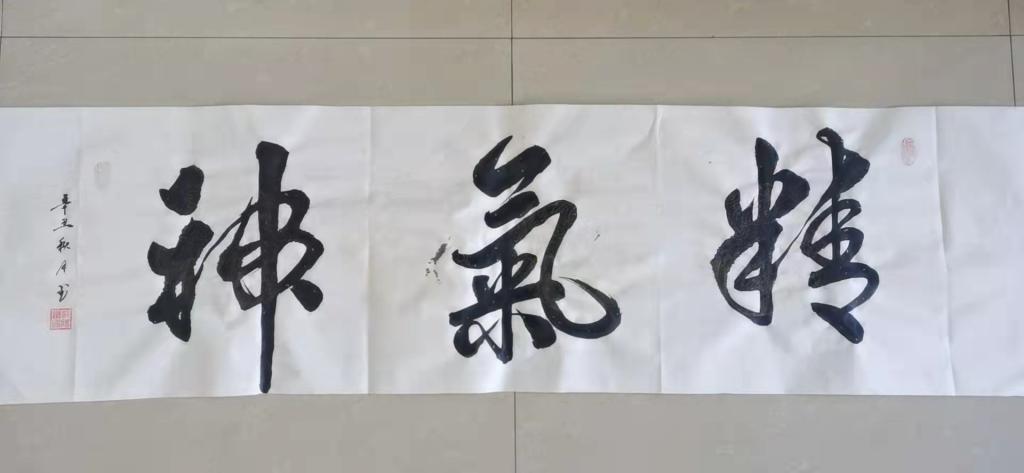 精氣神
辛丑秋月书